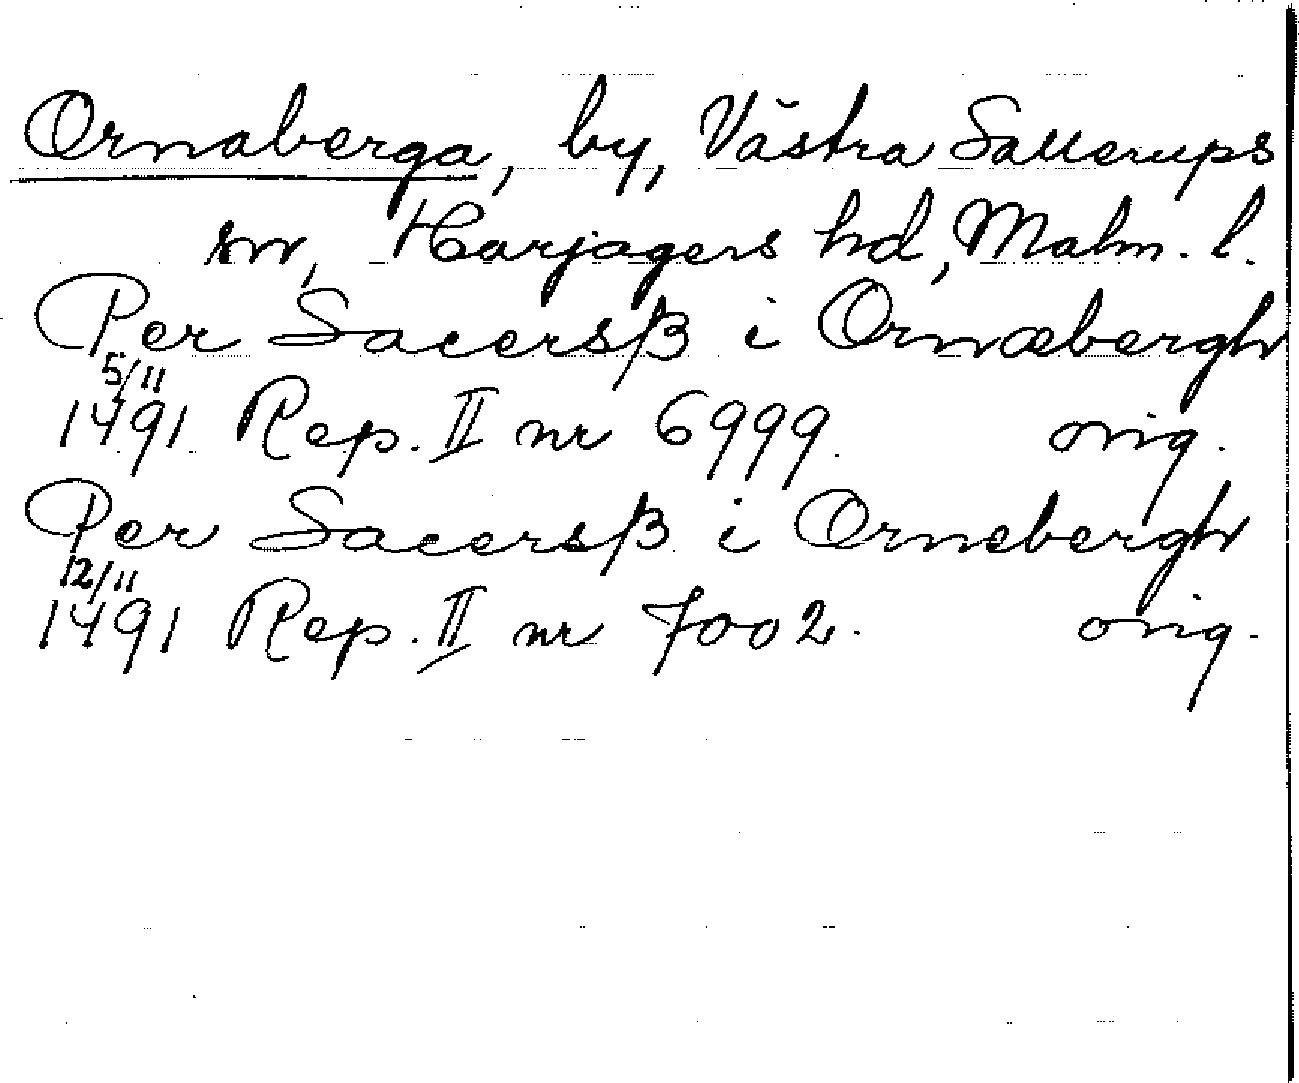 Ornaberga, by, Västra Sallerups
sn, Harjagers hd, Malm. l.
Per Sacersß i Ornæbergh
5/11
1491 Rep. II nr 6999. orig.
Per Sacersß i Ornebergh
12/11
1491 Rep. II nr 7002. orig.